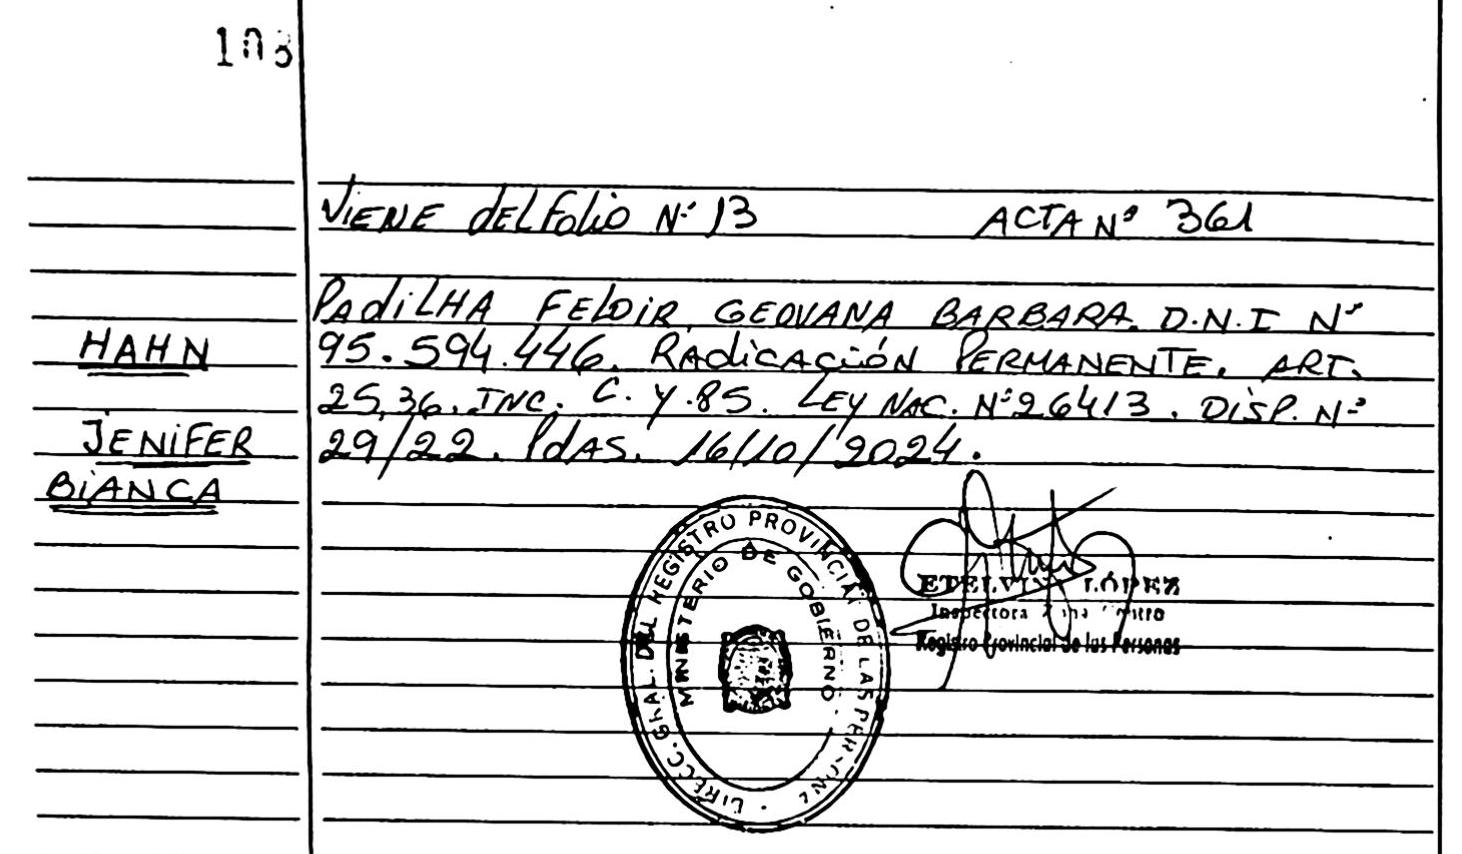 108
VIENE del Folio Nº 13 ACTA Nº 361
PADILHA FELDIR GEOVANA BARBARA. D.N.I Nº
HAHN
95.594.446. RADICACIÓN PERMANENTE. ART.
25,36. INC. C. Y. 85. LEY NAC. Nº 26413. DISP. Nº
JENIFER
29/22. PdAS. 16/10/2024.
BIANCA
DIRECC. GRAL. DEL REGISTRO PROVINCIAL DE LAS PERSONAS
MINISTERIO DE GOBIERNO
ETELVINA LÓPEZ
Inspectora Zona Centro
Registro Provincial de las Personas